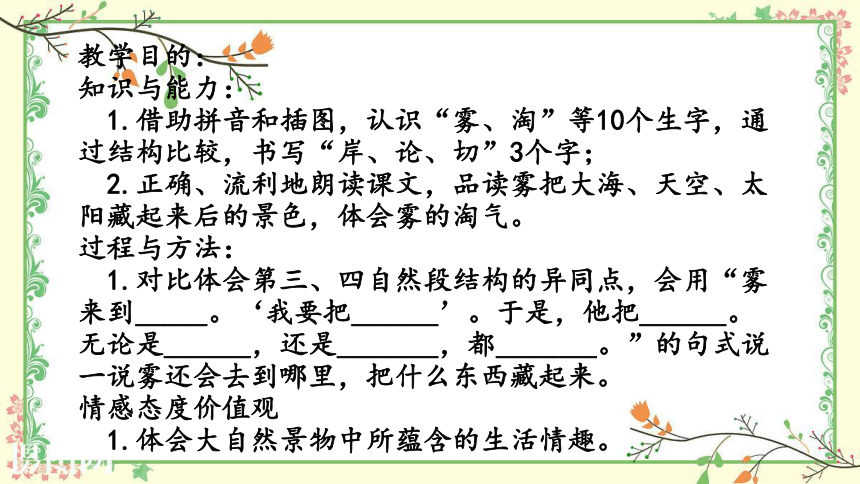 教学目的：
知识与能力：
1.借助拼音和插图，认识“雾、淘”等10个生字，通
过结构比较，书写“岸、论、切”3个字；
2.正确、流利地朗读课文，品读雾把大海、天空、太
阳藏起来后的景色，体会雾的淘气。
过程与方法：
1.对比体会第三、四自然段结构的异同点，会用“雾
来到_____。‘我要把______’。于是，他把______。
无论是______，还是_______，都_______。”的句式说
一说雾还会去到哪里，把什么东西藏起来。
情感态度价值观
1.体会大自然景物中所蕴含的生活情趣。